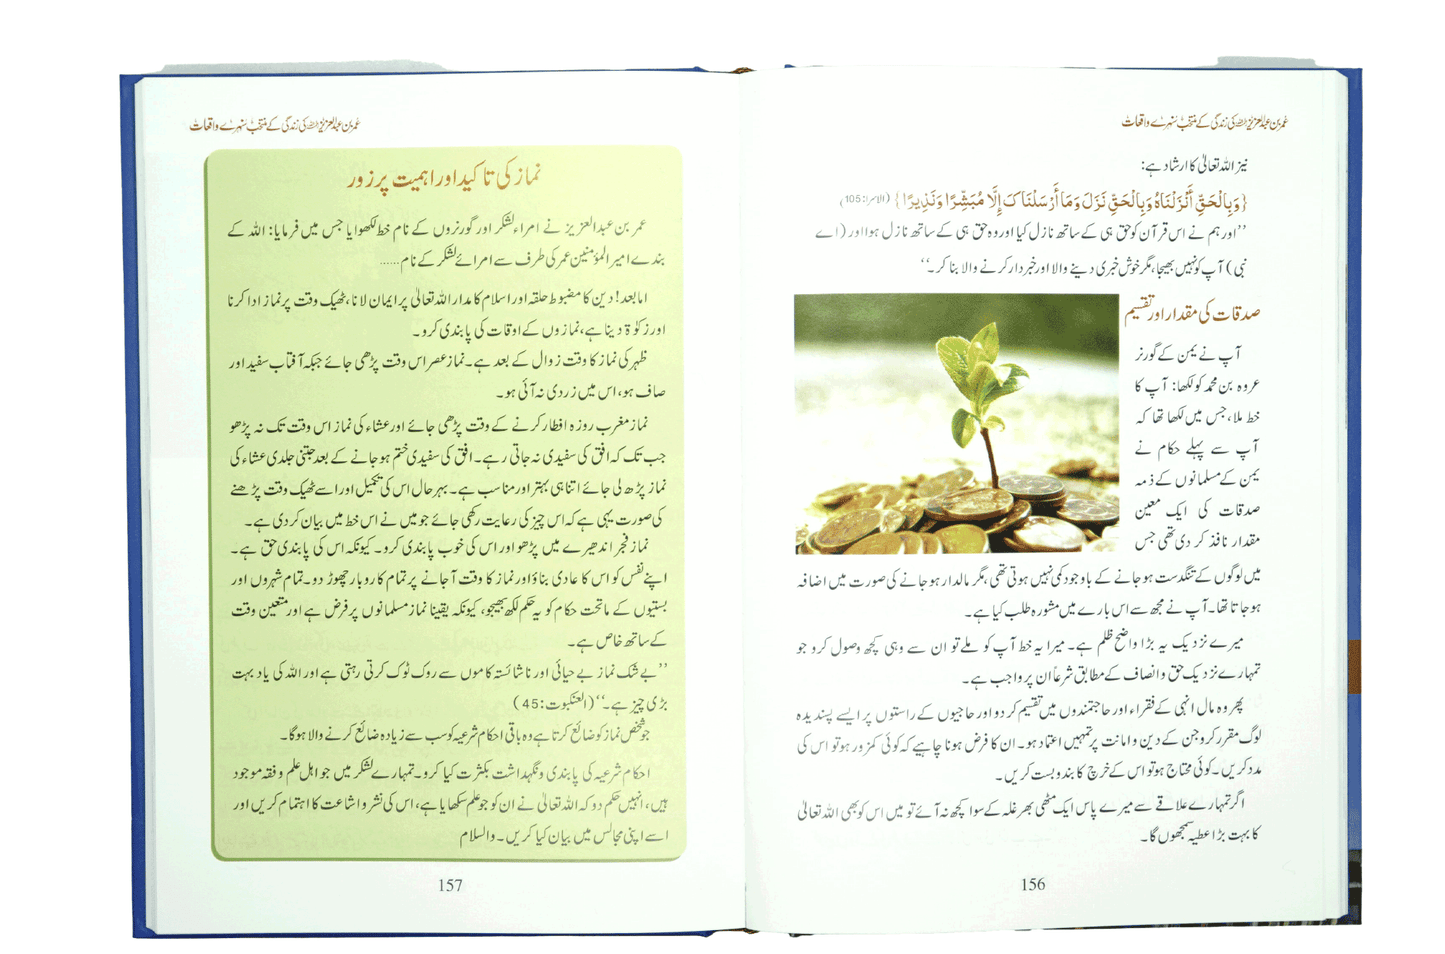 عمر بن عبدالعزیز رحمہ اللہ کی زندگی کے منتخب سنہرے واقعات
نیز اللہ تعالیٰ کا ارشاد ہے:
{وَبِالْحَقِّ أَنْزَلْنَاهُ وَبِالْحَقِّ نَزَلَ وَمَا أَرْسَلْنَاكَ إِلَّا مُبَشِّرًا وَنَذِيرًا} (الاسراء:105)
’’اور ہم نے اس قرآن کو حق ہی کے ساتھ نازل کیا اور وہ حق ہی کے ساتھ نازل ہوا اور (اے
نبی) آپ کو نہیں بھیجا، مگر خوش خبری دینے والا اور خبردار کرنے والا بنا کر۔‘‘
صدقات کی مقدار اور تقسیم
آپ نے یمن کے گورنر
عروہ بن محمد کو لکھا: آپ کا
خط ملا، جس میں لکھا تھا کہ
آپ سے پہلے حکام نے
یمن کے مسلمانوں کے ذمہ
صدقات کی ایک معین
مقدار نافذ کر دی تھی جس
میں لوگوں کے تنگدست ہو جانے کے باوجود کمی نہیں ہوتی تھی، مگر مالدار ہو جانے کی صورت میں اضافہ
ہو جاتا تھا۔ آپ نے مجھ سے اس بارے میں مشورہ طلب کیا ہے۔
میرے نزدیک یہ بڑا واضح ظلم ہے۔ میرا یہ خط آپ کو ملے تو ان سے وہی کچھ وصول کرو جو
تمہارے نزدیک حق و انصاف کے مطابق شرعاً ان پر واجب ہے۔
پھر وہ مال انہی کے فقراء اور حاجتمندوں میں تقسیم کر دو اور حاجیوں کے راستوں پر ایسے پسندیدہ
لوگ مقرر کرو جن کے دین و امانت پر تمہیں اعتماد ہو۔ ان کا فرض ہونا چاہیے کہ کوئی کمزور ہو تو اس کی
مدد کریں۔ کوئی محتاج ہو تو اس کے خرچ کا بندوبست کریں۔
اگر تمہارے علاقے سے میرے پاس ایک مٹھی بھر غلہ کے سوا کچھ نہ آئے تو میں اس کو بھی اللہ تعالیٰ
کا بہت بڑا عطیہ سمجھوں گا۔
156
عمر بن عبدالعزیز رحمہ اللہ کی زندگی کے منتخب سنہرے واقعات
نماز کی تاکید اور اہمیت پر زور
عمر بن عبدالعزیز نے امراء لشکر اور گورنروں کے نام خط لکھوایا جس میں فرمایا: اللہ کے
بندے امیر المؤمنین عمر کی طرف سے امرائے لشکر کے نام......
اما بعد! دین کا مضبوط حلقہ اور اسلام کا مدار اللہ تعالیٰ پر ایمان لانا، ٹھیک وقت پر نماز ادا کرنا
اور زکوٰۃ دینا ہے، نمازوں کے اوقات کی پابندی کرو۔
ظہر کی نماز کا وقت زوال کے بعد ہے۔ نماز عصر اس وقت پڑھی جائے جبکہ آفتاب سفید اور
صاف ہو، اس میں زردی نہ آئی ہو۔
نماز مغرب روزہ افطار کرنے کے وقت پڑھی جائے اور عشاء کی نماز اس وقت تک نہ پڑھو
جب تک کہ افق کی سفیدی نہ جاتی رہے۔ افق کی سفیدی ختم ہو جانے کے بعد جتنی جلدی عشاء کی
نماز پڑھ لی جائے اتنا ہی بہتر اور مناسب ہے۔ بہرحال اس کی تکمیل اور اسے ٹھیک وقت پڑھنے
کی صورت یہی ہے کہ اس چیز کی رعایت رکھی جائے جو میں نے اس خط میں بیان کر دی ہے۔
نماز فجر اندھیرے میں پڑھو اور اس کی خوب پابندی کرو۔ کیونکہ اس کی پابندی حق ہے۔
اپنے نفس کو اس کا عادی بناؤ اور نماز کا وقت آ جانے پر تمام کاروبار چھوڑ دو۔ تمام شہروں اور
بستیوں کے ماتحت حکام کو یہ حکم لکھ بھیجو، کیونکہ یقینا نماز مسلمانوں پر فرض ہے اور متعین وقت
کے ساتھ خاص ہے۔
’’بے شک نماز بے حیائی اور ناشائستہ کاموں سے روک ٹوک کرتی رہتی ہے اور اللہ کی یاد بہت
بڑی چیز ہے۔‘‘ (العنکبوت:45)
جو شخص نماز کو ضائع کرتا ہے وہ باقی احکام شرعیہ کو سب سے زیادہ ضائع کرنے والا ہوگا۔
احکام شرعیہ کی پابندی و نگہداشت بکثرت کیا کرو۔ تمہارے لشکر میں جو اہل علم و فقہ موجود
ہیں، انہیں حکم دو کہ اللہ تعالیٰ نے ان کو جو علم سکھایا ہے، اس کی نشر و اشاعت کا اہتمام کریں اور
اسے اپنی مجالس میں بیان کیا کریں۔ والسلام
157